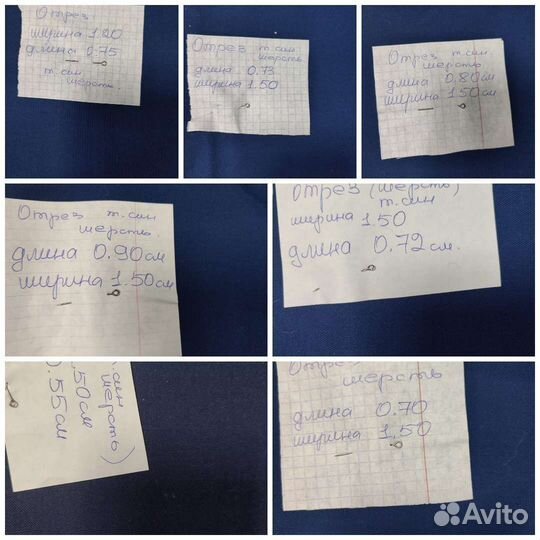 Отрез
ширина 1.20
длина 0.75
т.син
шерсть.
Отрез т.син
шерсть
длина 0.73
ширина 1.50
Отрез т.син.
шерсть
длина 0.80см
ширина 1.50см
Отрез т.син
шерсть.
длина 0.90см
ширина 1.50см
Отрез (шерсть)
т.син
ширина 1.50
длина 0.72см.
т.син
шерсть)
.50см
0.55см
Отрез
шерсть
длина 0.70
ширина 1.50
Avito